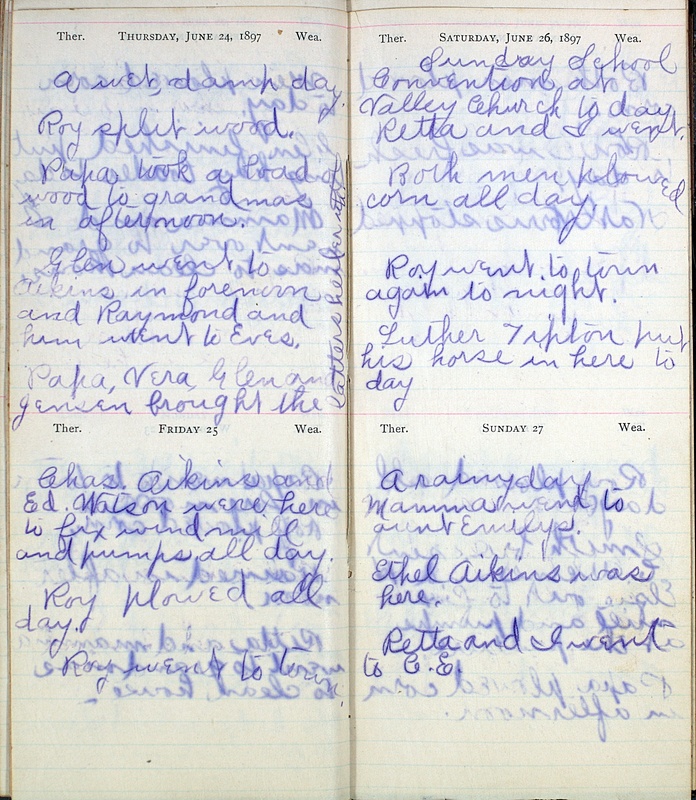 Ther. THURSDAY, JUNE 24, 1897 Wea.
A wet, damp day.
Roy split wood.
Papa took a load of
wood to grandmas
in afternoon.
Glen went to
Aikins in forenoon
and Raymond and
him went to Eves.
Papa, Vera, Glen and
Jensen brought the
Ther. FRIDAY 25 Wea.
Chas. Aikins and
Ed. Watson were here
to fix windmill
and pumps all day.
Roy plowed all
day.
Roy went to town.
Ther. SATURDAY, JUNE 26, 1897 Wea.
Sunday School
Convention at
Valley Church to day
Retta and I went.
Both men plowed
corn all day.
Roy went to town
again to night.
Luther Tipton put
his horse in here to
day
Ther. SUNDAY 27 Wea.
A rainy day
Mamma went to
aunt Emilys.
Ethel Aikins was
here.
Retta and I went
to C.E.